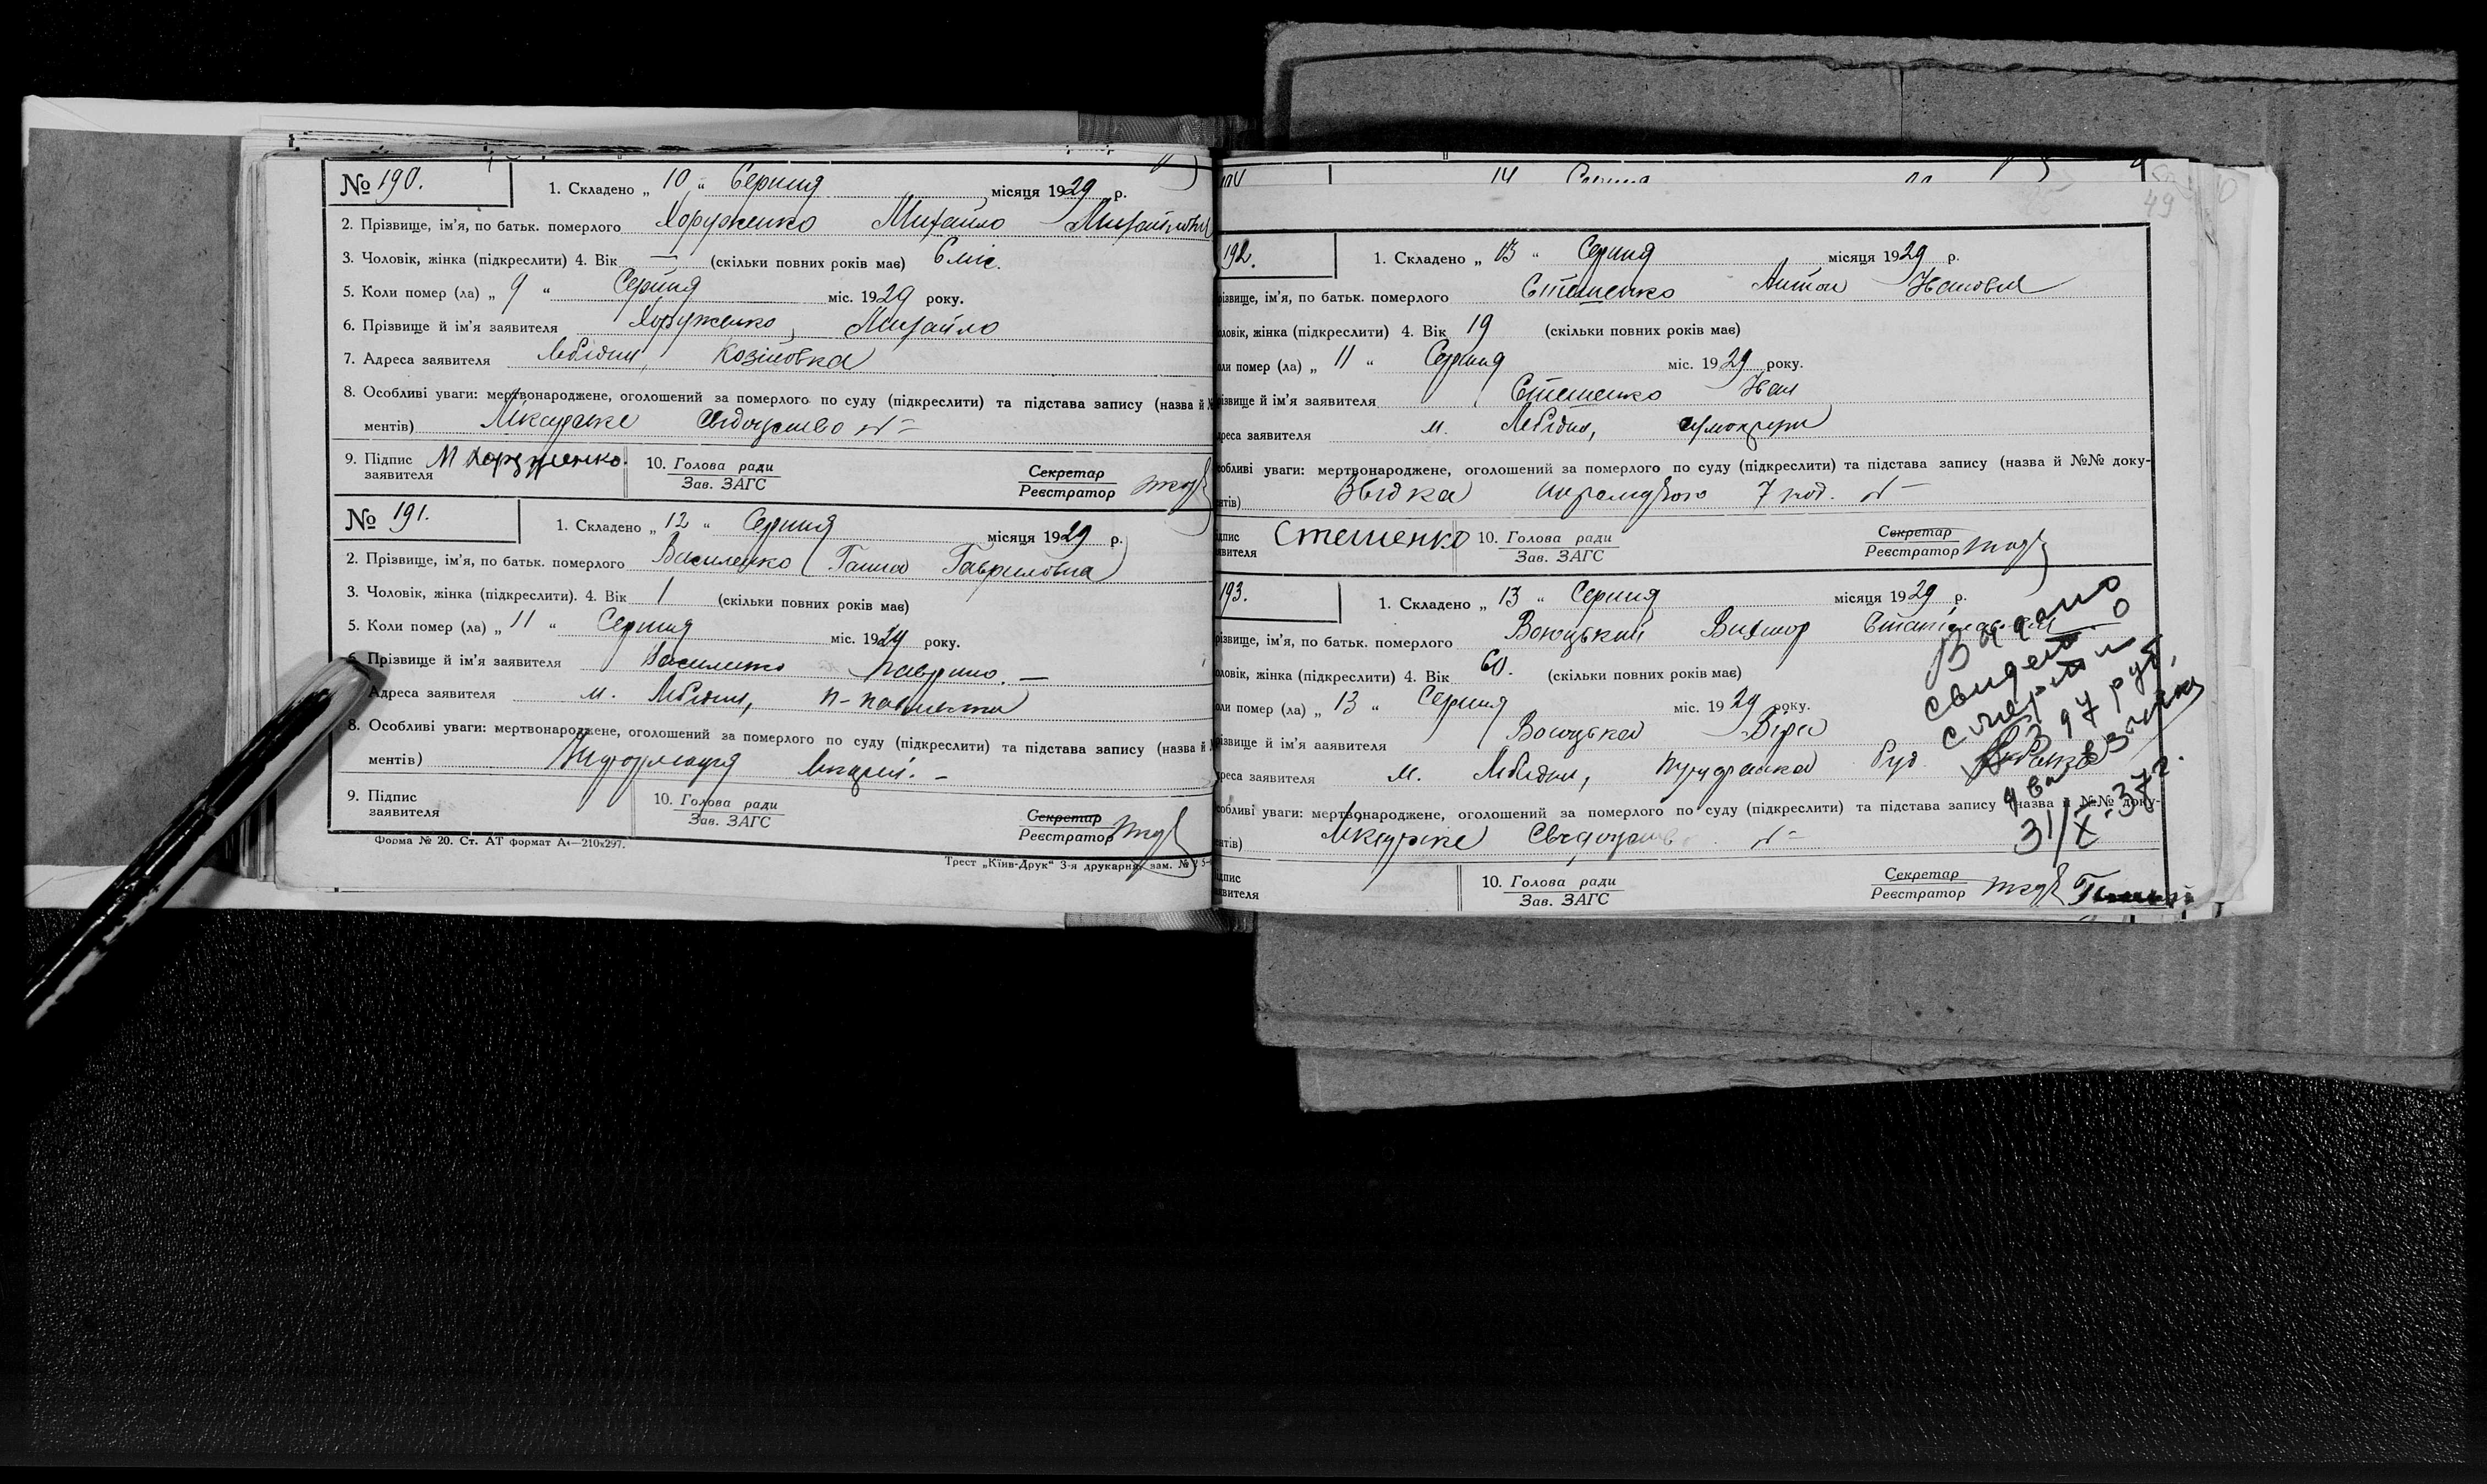 № 190.
1. Складено „ 10 „ Серпня місяця 1929 р.
2. Прізвище, ім'я, по батьк. померлого Хоруженко Михайло Михайлович
3. Чоловік, жінка (підкреслити) 4. Вік — (скільки повних років має) 6 міс.
5. Коли помер (ла) „ 9 “ Серпня міс. 1929 року.
6. Прізвище й ім'я заявителя Хоруженко, Михайло
7. Адреса заявителя Лебідин, Козіновка
8. Особливі уваги: мертвонароджене, оголошений за померлого по суду (підкреслити) та підстава запису (назва й
ментів) Лікарське свідоцтво №
9. Підпис заявителя М Хоруженко.
10. Голова ради
Зав. ЗАГС
Секретар
Реєстратор
№ 191.
1. Складено „ 12 “ Серпня місяця 1929 р.
2. Прізвище, ім'я, по батьк. померлого Василенко Ганна Гавриловна
3. Чоловік, жінка (підкреслити). 4. Вік 1 (скільки повних років має)
5. Коли помер (ла) „ 11 “ Серпня міс. 1929 року.
6. Прізвище й ім'я заявителя Василенко Гаврило. —
Адреса заявителя м. Лебідин,
8. Особливі уваги: мертвонароджене, оголошений за померлого по суду (підкреслити) та підстава запису (назва й
ментів) Информация
9. Підпис
заявителя
10. Голова ради
Зав. ЗАГС
Секретар
Реєстратор
Форма № 20. Ст. АТ формат А4—210x297.
Трест „Київ-Друк“ 3-я друкарня, зам. №
14 Серпня
49
192.
1. Складено „ 13 “ Серпня місяця 1929 р.
різвище, ім'я, по батьк. померлого Стешенко Антон Іванович
оловік, жінка (підкреслити) 4. Вік 19 (скільки повних років має)
оли помер (ла) „ 11 “ Серпня міс. 1929 року.
різвище й ім'я заявителя Стешенко Иван
дреса заявителя м. Лебідин,
собливі уваги: мертвонароджене, оголошений за померлого по суду (підкреслити) та підстава запису (назва й №№ доку-
нтів) №
дпис
явителя Стешенко
10. Голова ради
Зав. ЗАГС
Секретар
Реєстратор
193.
1. Складено „ 13 “ Серпня місяця 1929 р.
різвище, ім'я, по батьк. померлого Віктор
оловік, жінка (підкреслити) 4. Вік 60. (скільки повних років має)
оли помер (ла) „ 13 “ Серпня міс. 1929 року.
різвище й ім'я заявителя Віра
дреса заявителя м. Лебідин,
собливі уваги: мертвонароджене, оголошений за померлого по суду (підкреслити) та підстава запису (назва й №№ доку-
нтів) Лікарське Свідоцтво №
дпис
явителя
10. Голова ради
Зав. ЗАГС
Секретар
Реєстратор
Выдано
свидет. о
смерти
31/X-37г.